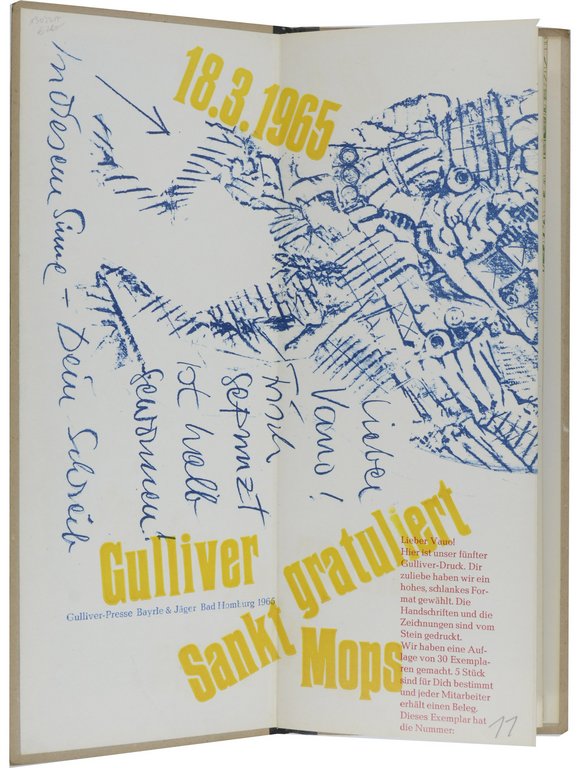 18.3.1965
Lieber
Vano!
frisch
gepinzt
ist halb
gewonnen!
In diesem Sinne – Dein Schreib
Gulliver
gratuliert
Sankt
Mops
Gulliver-Presse Bayrle & Jäger Bad Homburg 1965
Lieber Vauo!
Hier ist unser fünfter
Gulliver-Druck. Dir
zuliebe haben wir ein
hohes, schlankes For-
mat gewählt. Die
Handschriften und die
Zeichnungen sind vom
Stein gedruckt.
Wir haben eine Auf-
lage von 30 Exempla-
ren gemacht. 5 Stück
sind für Dich bestimmt
und jeder Mitarbeiter
erhält einen Beleg.
Dieses Exemplar hat
die Nummer:
11